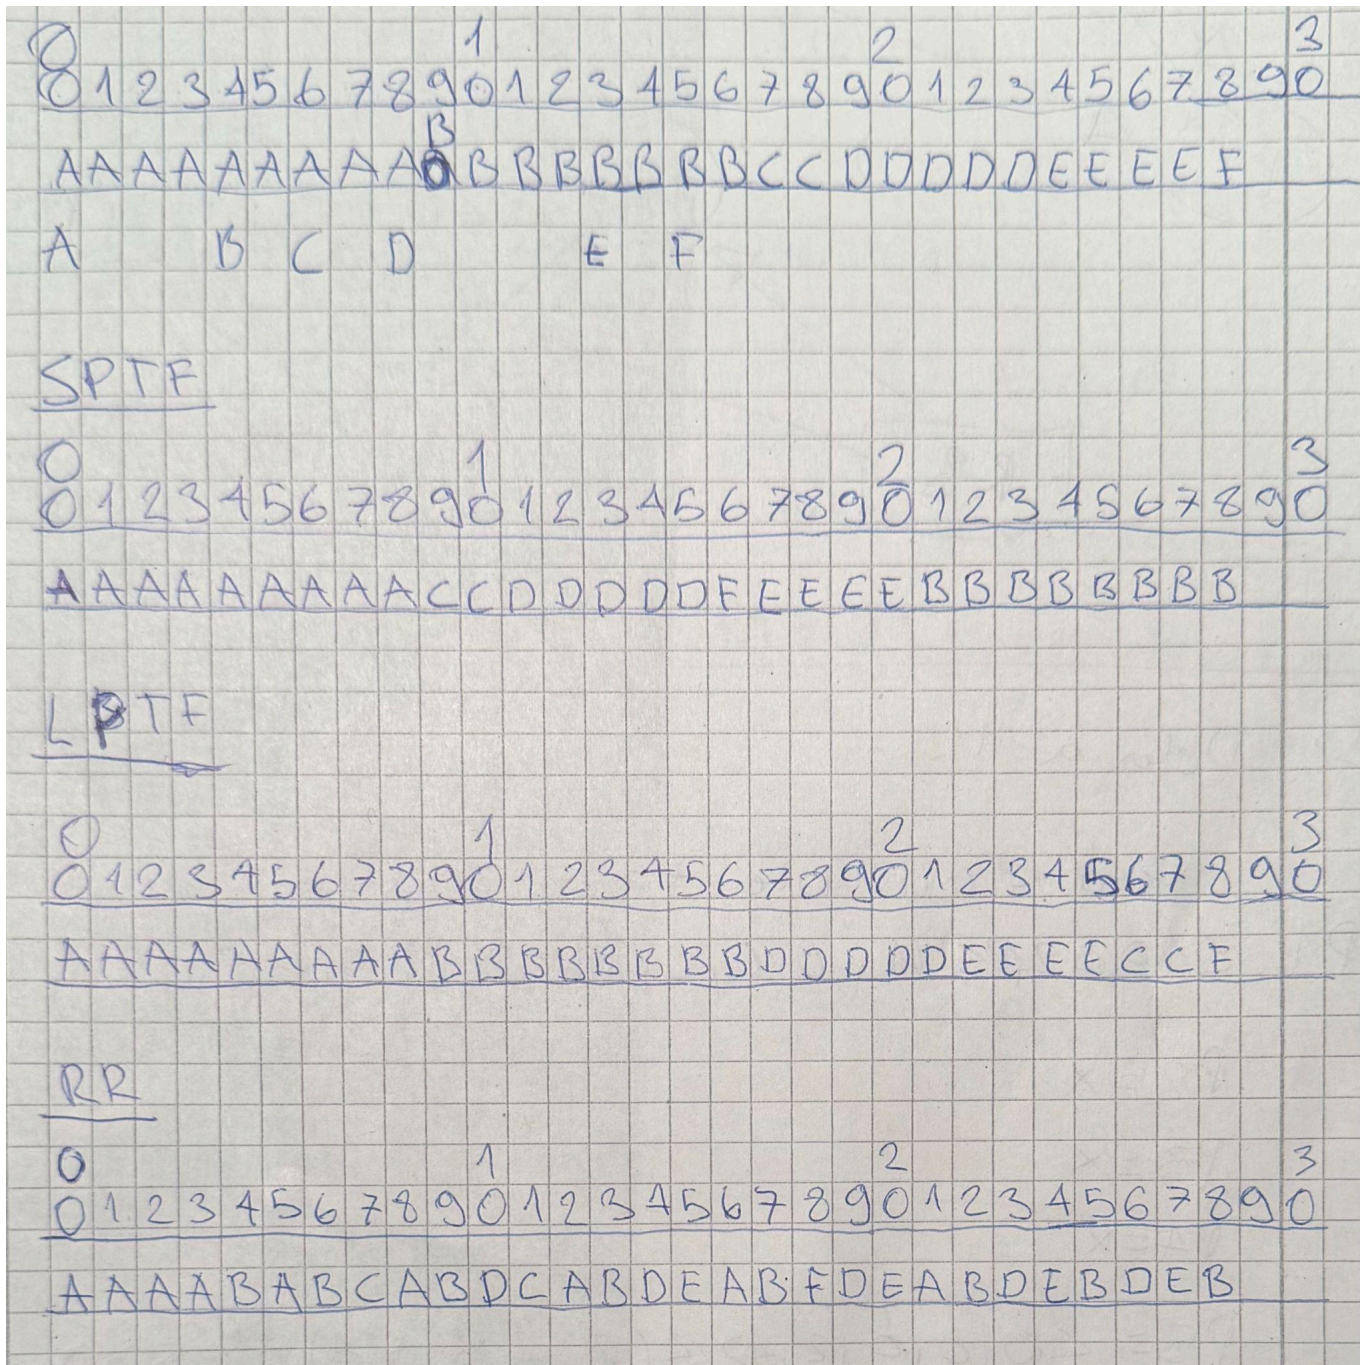 0 1 2 3
0 1 2 3 4 5 6 7 8 9 0 1 2 3 4 5 6 7 8 9 0 1 2 3 4 5 6 7 8 9 0
B
A A A A A A A A A B B B B B B B C C D D D D D E E E E F
A B C D E F
SPTF
0 1 2 3
0 1 2 3 4 5 6 7 8 9 0 1 2 3 4 5 6 7 8 9 0 1 2 3 4 5 6 7 8 9 0
A A A A A A A A A C C D D D D D F E E E E B B B B B B B B
LPTF
0 1 2 3
0 1 2 3 4 5 6 7 8 9 0 1 2 3 4 5 6 7 8 9 0 1 2 3 4 5 6 7 8 9 0
A A A A A A A A A B B B B B B B B D D D D D E E E E C C F
RR
0 1 2 3
0 1 2 3 4 5 6 7 8 9 0 1 2 3 4 5 6 7 8 9 0 1 2 3 4 5 6 7 8 9 0
A A A A B A B C A B D C A B D E A B F D E A B D E B D E B